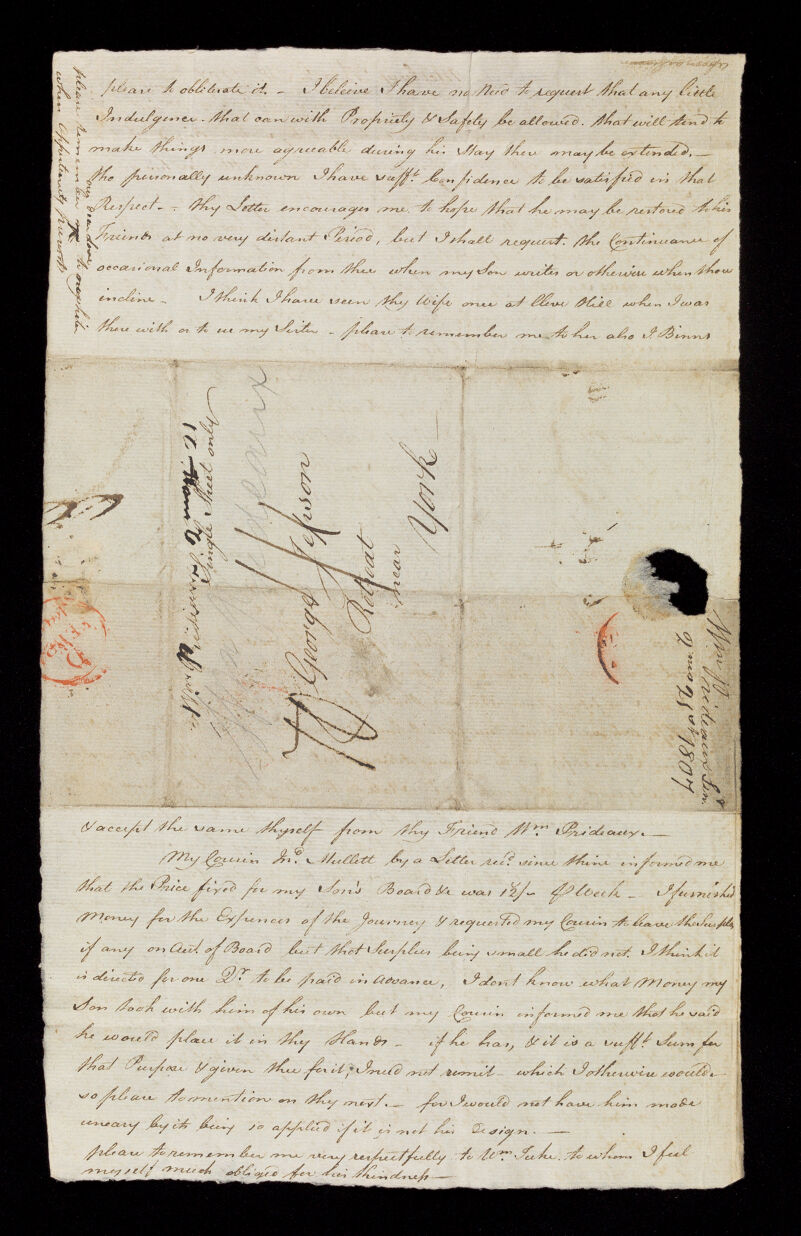 please to obliterate it. - I beleive I have no need to request that any little
Indulgence that can with Propriety & Safety be allowed. that will tend to
make things more agreeable during his Stay there may be extended. -
tho personally unknown I have sufft. Confidence to be satisfied in that
Respect. - thy Letter encourages me to hope that he may be restored to his
Friends at no very distant Period, but I shall request. the Continuance of
occasional Information from thee when my Son writes or otherwise when thou
incline - I think I have seen thy Wife once at Cleve Hill when I was
there with or to see my Sister - please to remember me to her also & Binns
please remember my dear Love to
when Opportunity presents
Single Sheet only
George Jepson
Retreat
near
York
Wm. Prideaux Senr.
1807
& accept the same thyself from thy Friend Wm. Prideaux. -
My Cousin Jno. Mullett by a Letter recd. since thine informed me
that the Price fixed for my Son's Board &c was 12/- Week - I furnish'd
Money for the Expences of the Journey & requested my Cousin to leave the Surplus
if any on Acct. of Board but that Surplus being small he did not. I think it
is directed for one Qr. to be paid in Advance, I dont know what Money my
Son took with him of his own but my Cousin informed me that he said
he would place it in thy Hands - if he has, & it is a sufft. Sum for
that Purpose & given thee for it, I need not remit - which I otherwise would -
so please to mention on thy next. - for I would not have him made
uneasy by its being so applied if it is not his design. -
please to remember me very respectfully to Wm. Tuke. to whom I feel
myself much obliged for his kindness -